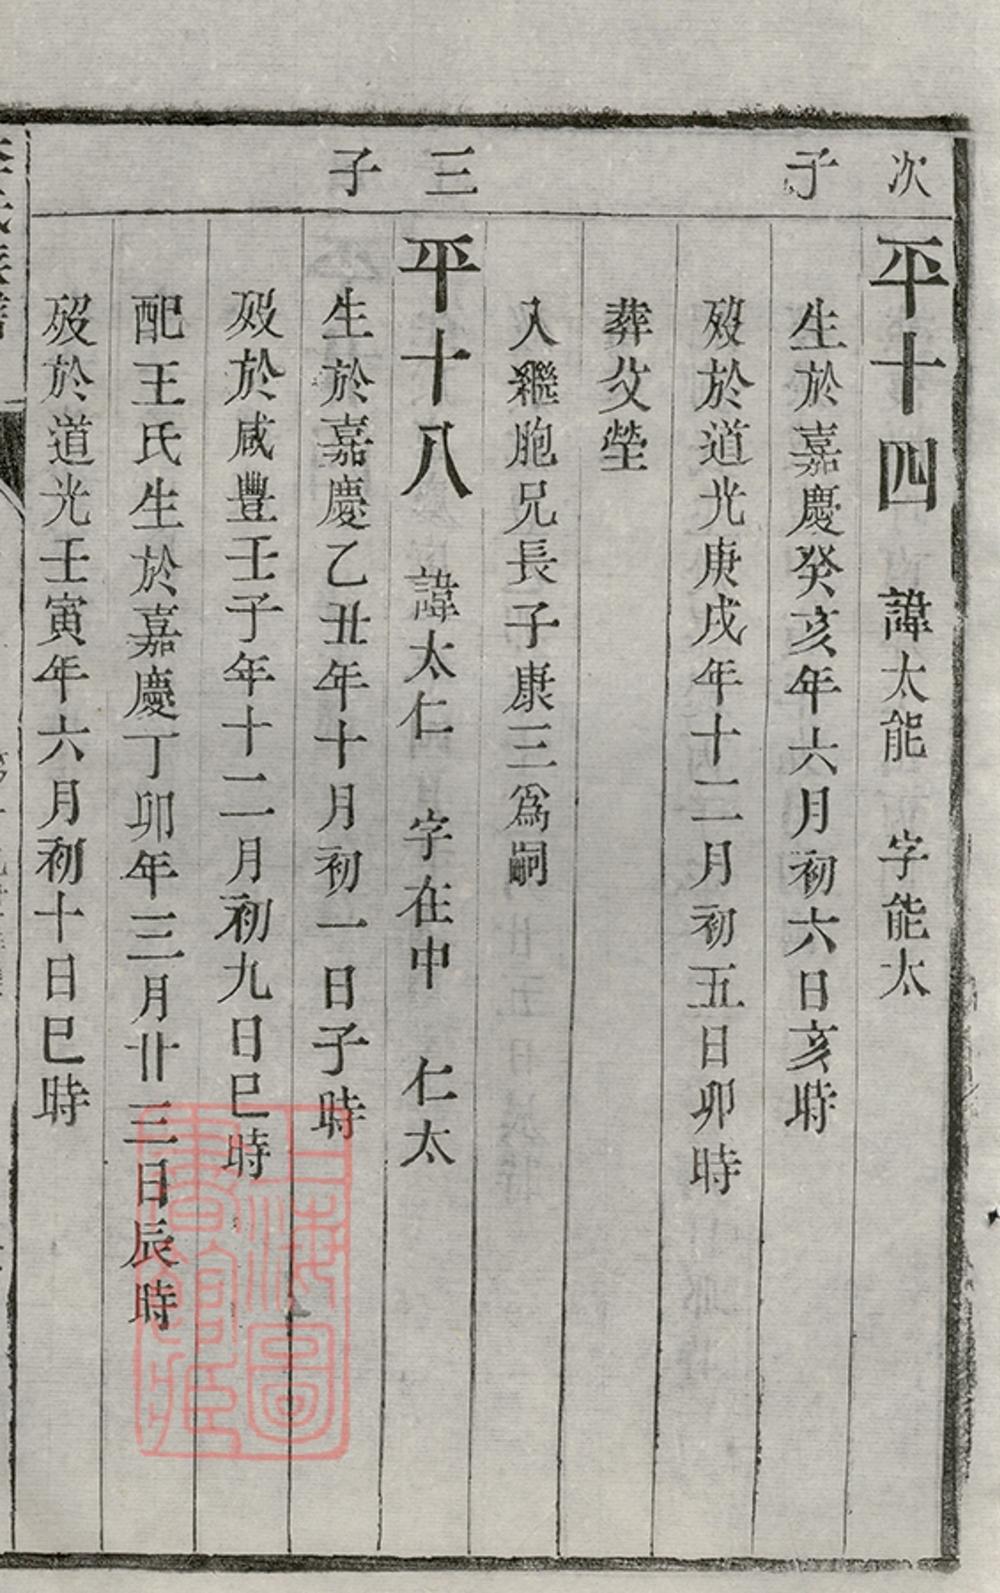 次子
平十四 諱太能 字能太
生於嘉慶癸亥年六月初六日亥時
歿於道光庚戌年十二月初五日卯時
葬父塋
入繼胞兄長子康三爲嗣
三子
平十八 諱太仁 字在中 仁太
生於嘉慶乙丑年十月初一日子時
歿於咸豐壬子年十二月初九日巳時
配王氏生於嘉慶丁卯年三月廿三日辰時
歿於道光壬寅年六月初十日巳時
上海圖書館藏